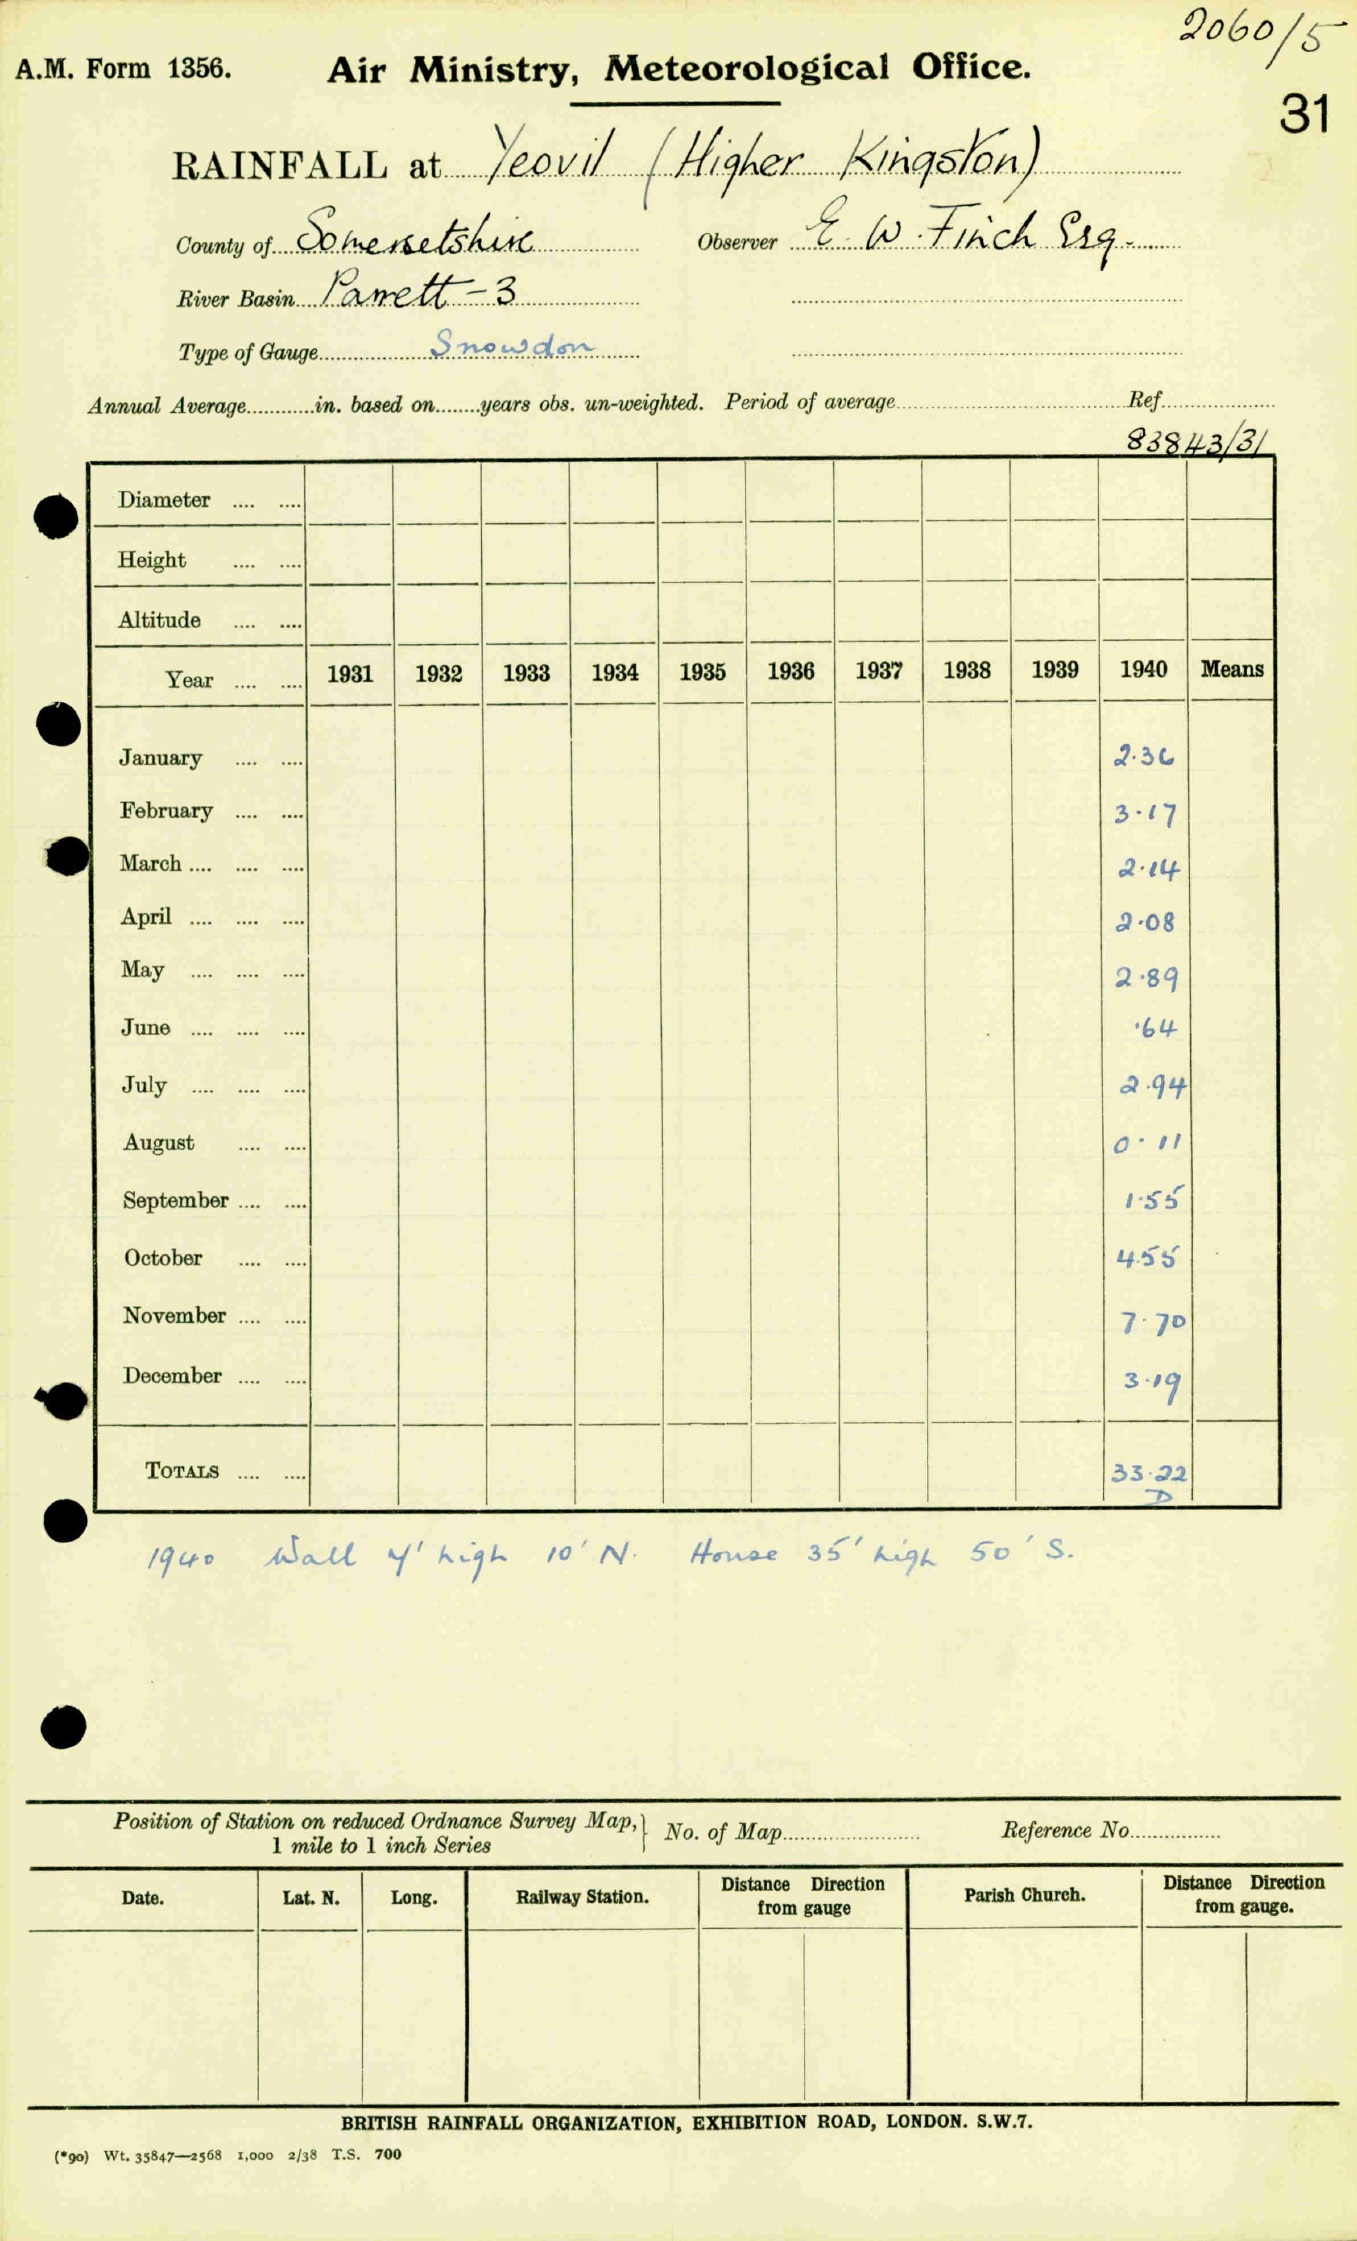 2060/5
A.M. Form 1356. Air Ministry, Meteorological Office.
31
RAINFALL at Yeovil (Higher Kingston)
County of Somersetshire Observer E. W. Finch Esq.
River Basin Parrett - 3
Type of Gauge Snowdon
Annual Average............in. based on........years obs. un-weighted. Period of average............ Ref............
83843/31
Diameter .... ....
Height .... ....
Altitude .... ....
Year .... .... 1931 1932 1933 1934 1935 1936 1937 1938 1939 1940 Means
January .... .... 2.36
February .... .... 3.17
March .... .... .... 2.14
April .... .... .... 2.08
May .... .... .... 2.89
June .... .... .... .64
July .... .... .... 2.94
August .... .... 0.11
September .... .... 1.55
October .... .... 4.55
November .... .... 7.70
December .... .... 3.19
TOTALS .... .... 33.22
D
1940 Wall high 10' N. House 35' high 50' S.
Position of Station on reduced Ordnance Survey Map, } No. of Map............ Reference No............
1 mile to 1 inch Series
Date. Lat. N. Long. Railway Station. Distance Direction from gauge Parish Church. Distance Direction from gauge.
BRITISH RAINFALL ORGANIZATION, EXHIBITION ROAD, LONDON. S.W.7.
(*90) Wt. 35847—2568 1,000 2/38 T.S. 700